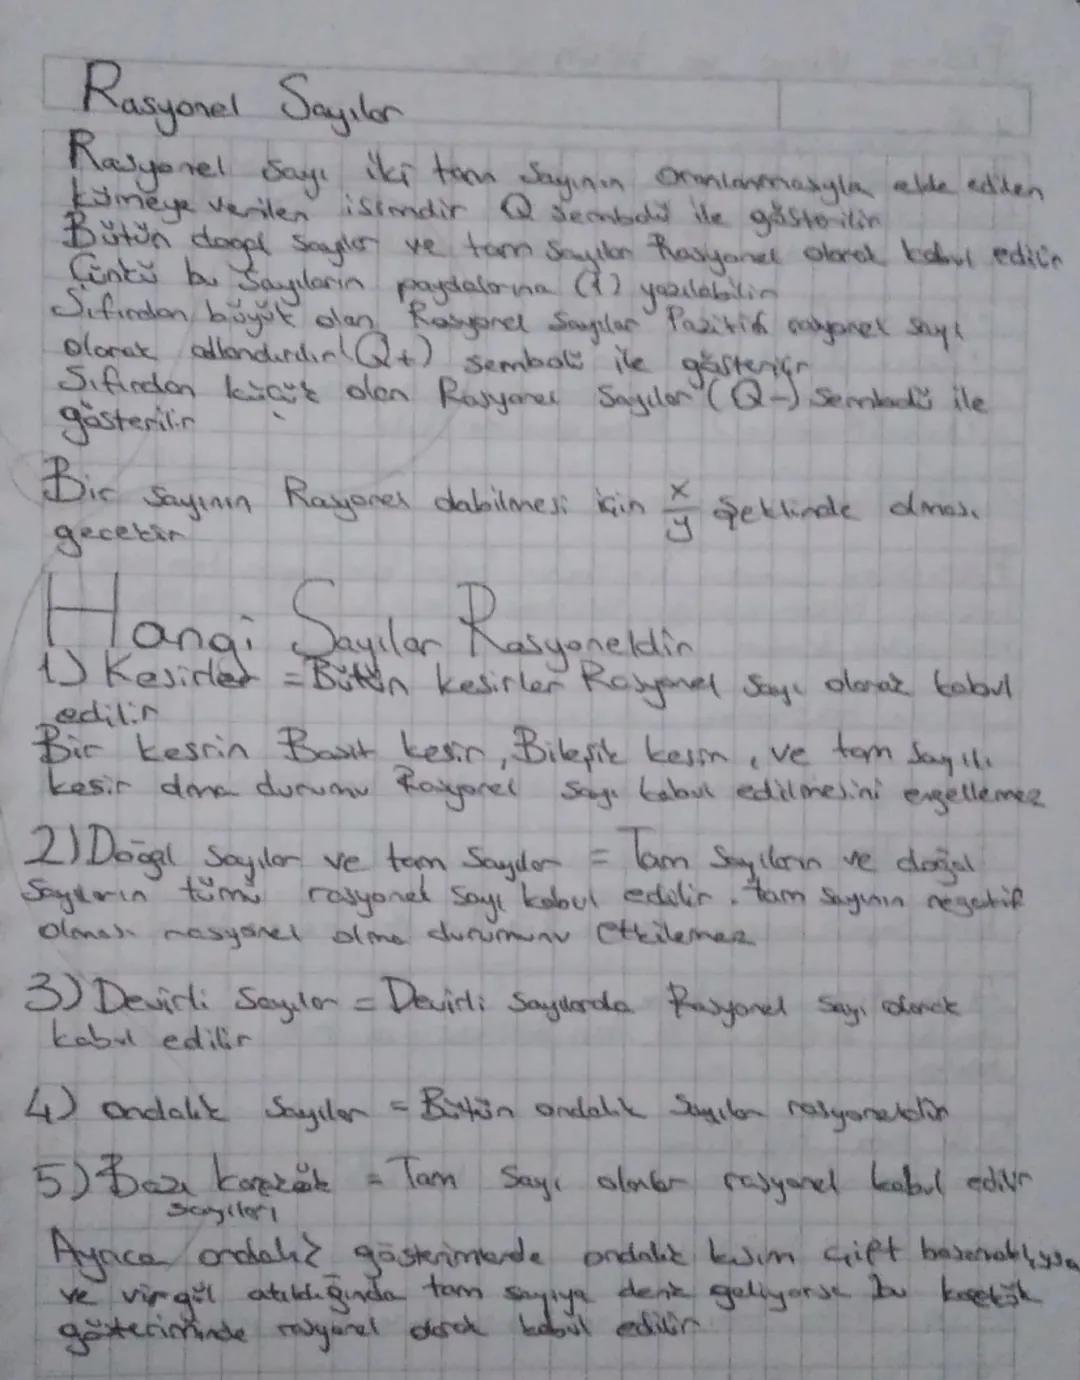 Rasyonel Sayılar
Rasyonel Sayı iki tam Sayının oranlanmasıyla elde edilen
kümeye verilen isimdir Q Sembolü ile gösterilir
Bütün dogal Sayılar ve tam Sayılar Rasyonel olarak kabul edilir
Çünkü bu Sayıların paydalarına (1) yazılabilir
Sıfırdan büyük olan Rasyonel Sayılar Pozitif rasyonel Sayı
olarak adlandırılır (Q+) sembolü ile gösterilir
Sıfırdan küçük olan Rasyonel Sayılar (Q-) Sembolü ile
gösterilir
Bir Sayının Rasyonel olabilmesi için x/y Şeklinde olması
gerekir
Hangi Sayılar Rasyoneldir
1) Kesirler = Bütün kesirler Rasyonel Sayı olarak kabul
edilir
Bir kesrin Basit kesir, Bileşik kesir, ve tam Sayılı
kesir olma durumu Rasyonel Sayı kabul edilmesini engellemez
2) Doğal Sayılar ve tam Sayılar = Tam Sayıların ve doğal
Sayıların tümü rasyonel Sayı kabul edilir. tam Sayının negatif
olması rasyonel olma durumunu etkilemez
3) Devirli Sayılar = Devirli Sayılarda Rasyonel Sayı olarak
kabul edilir
4) ondalık Sayılar = Bütün ondalık Sayılar rasyoneldir
5) Bazı karekök = Tam Sayı olanlar rasyonel kabul edilir
sayıları
Ayrıca ondalık gösterimlerde ondalık kısım çift basamaklıysa
ve virgül atıldığında tam sayıya denk geliyorsa bu karekök
gösteriminde rasyonel olarak kabul edilir